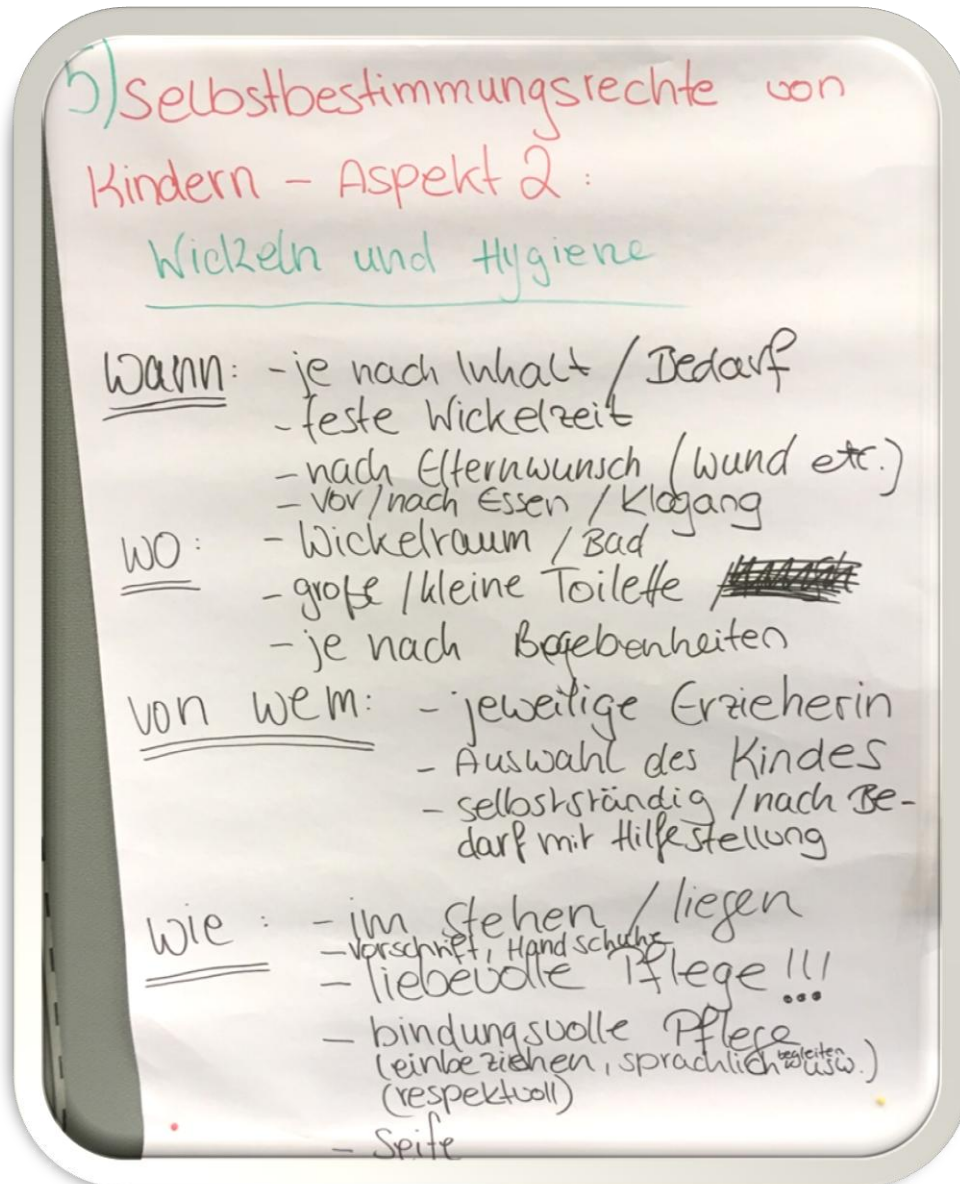 5) Selbstbestimmungsrechte von
Kindern - Aspekt 2:
Wickeln und Hygiene
wann: - je nach Inhalt / Bedarf
- feste Wickelzeit
- nach Elternwunsch (wund etc.)
- vor/nach Essen / Klogang
wo: - Wickelraum / Bad
- große / kleine Toilette /
- je nach Begebenheiten
von wem: - jeweilige Erzieherin
- Auswahl des Kindes
- selbstständig / nach Be-
darf mit Hilfestellung
wie: - im stehen / liegen
- Vorschrift, Handschuhe
- liebevolle Pflege !!!
- bindungsvolle Pflege
(einbeziehen, sprachlich begleiten usw.)
(respektvoll)
- Seife